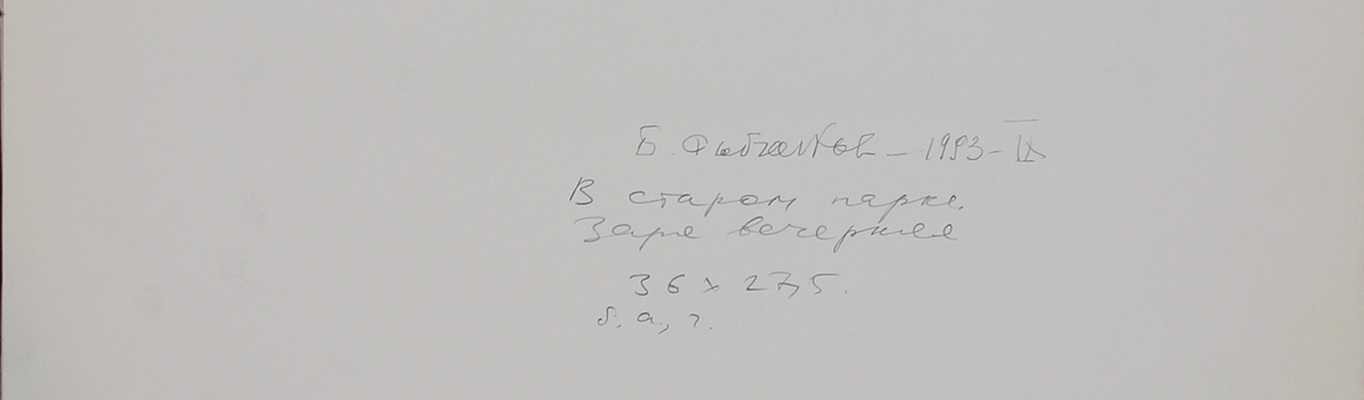 Б. Рыбченков – 1983-IX
В старом парке.
Заря вечерняя
36 x 27,5.
б. а, г.